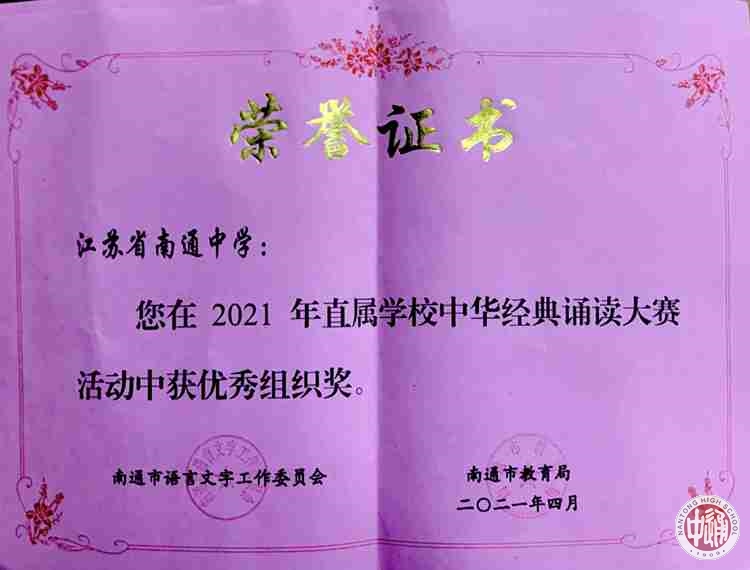 荣誉证书
江苏省南通中学：
您在 2021 年直属学校中华经典诵读大赛
活动中获优秀组织奖。
南通市语言文字工作委员会
南通市教育局
二〇二一年四月
NANTONG HIGH SCHOOL
中通
1909